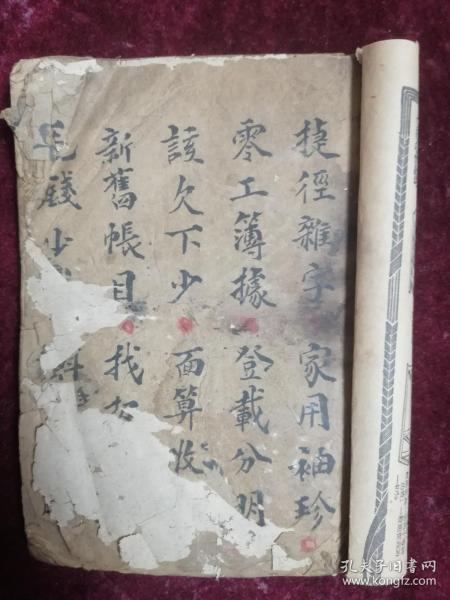 捷徑雜字 家用袖珍
零工簿據 登載分明
該欠下少 面算收
新舊帳目 找
毛錢少
孔夫子旧书网
https://www.kongfz.com